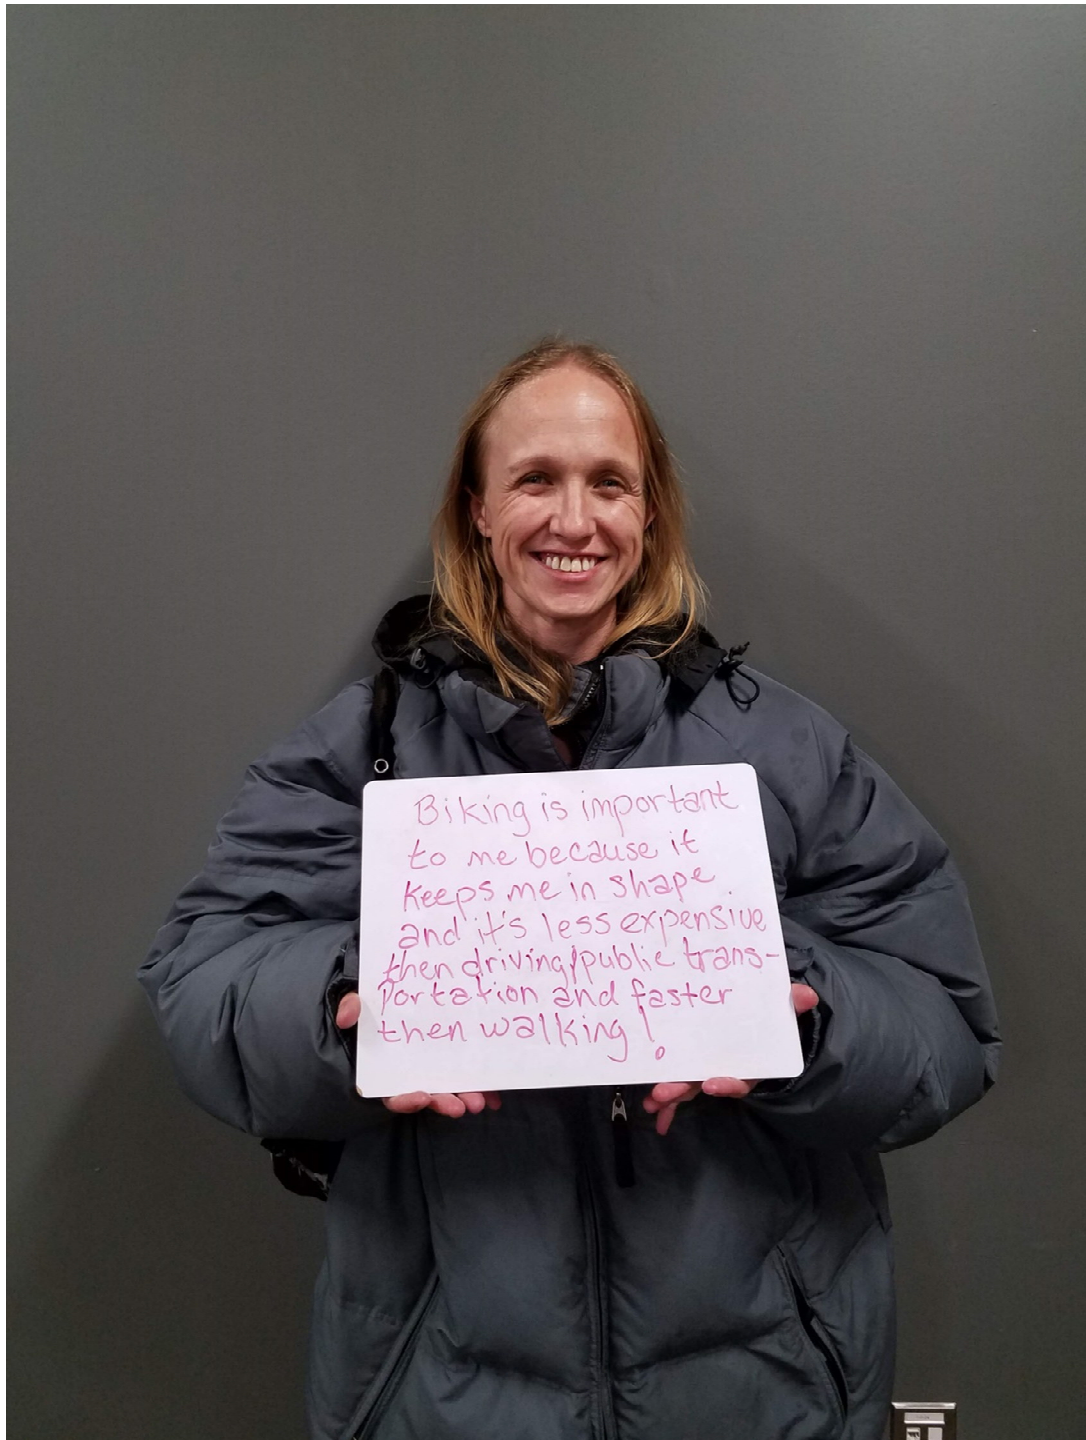 Biking is important
to me because it
keeps me in shape
and it's less expensive
then driving/public trans-
portation and faster
then walking!